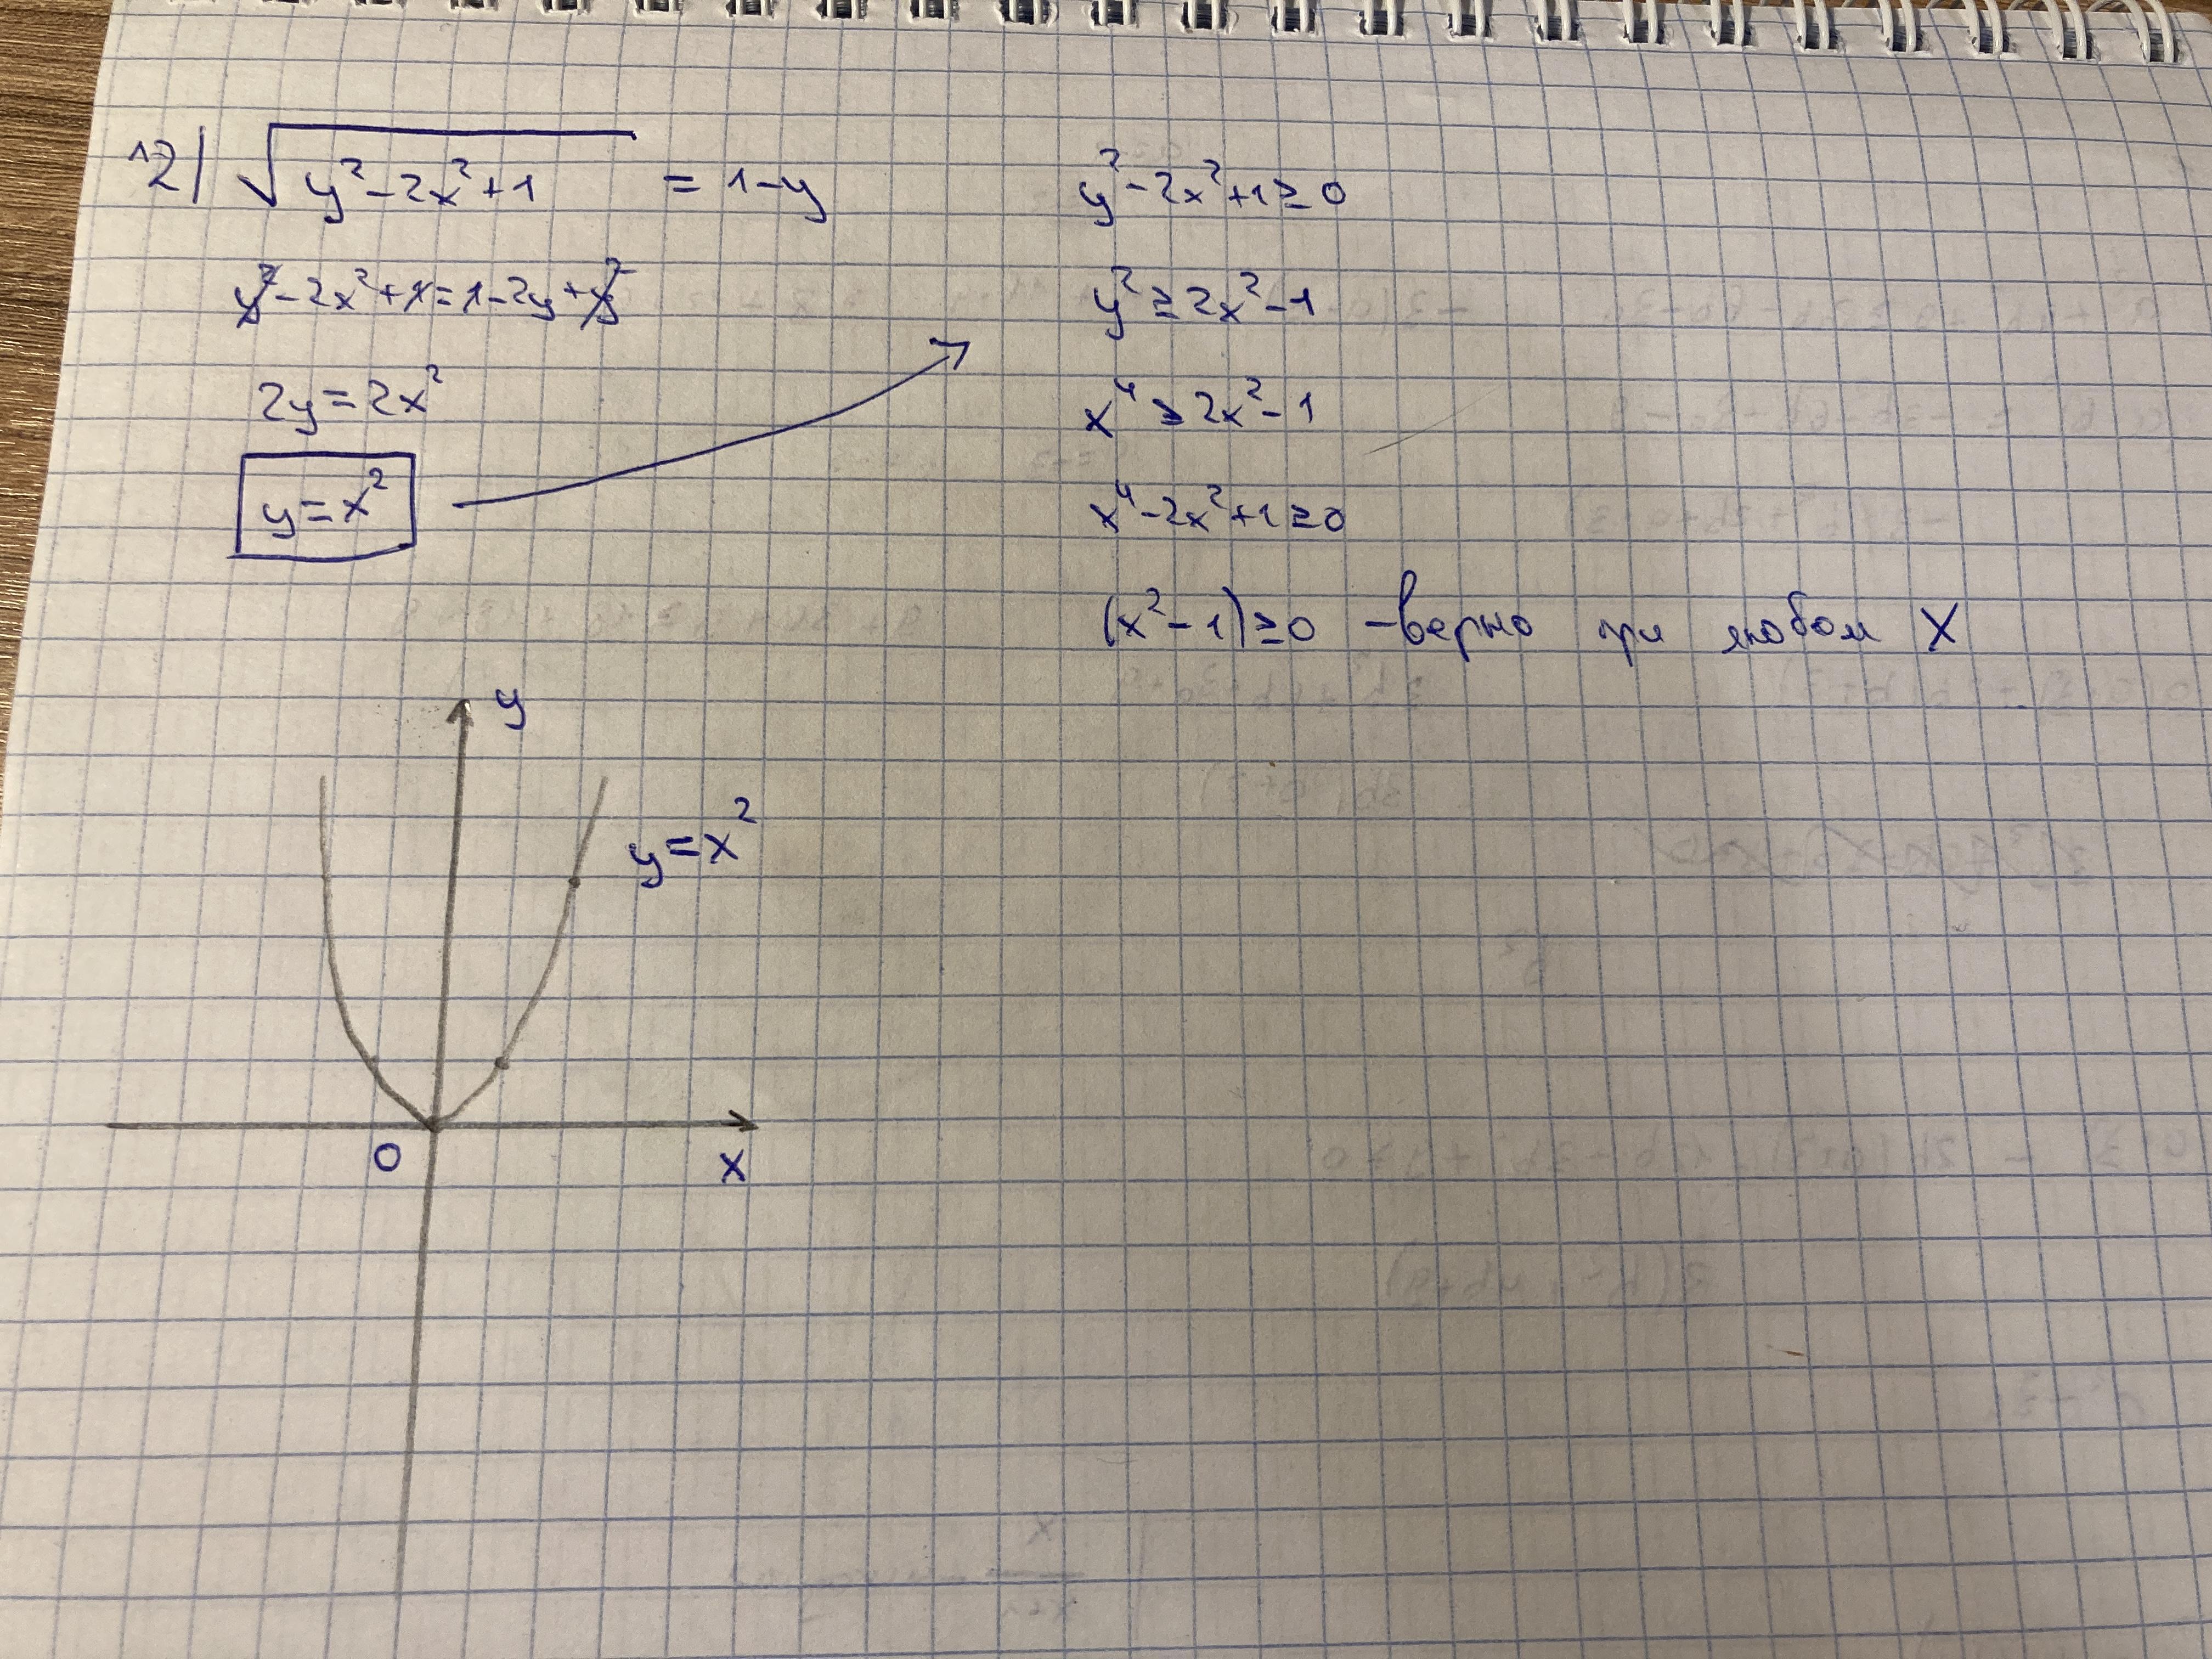 12) √(y²-2x²+1) = 1-y
y²-2x²+1=1-2y+y²
2y=2x²
y=x²
y²-2x²+1≥0
y²≥2x²-1
x⁴≥2x²-1
x⁴-2x²+1≥0
(x²-1)≥0 -верно при любом X
y
y=x²
0
x